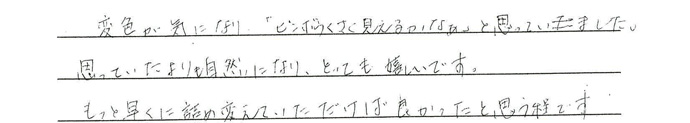 変色が気になり、「ビンボウくさく見えるかなぁ」と思っていました。
思っていたよりも自然になり、とっても嬉しいです。
もっと早くに詰め変えていただけば良かったと思う程です